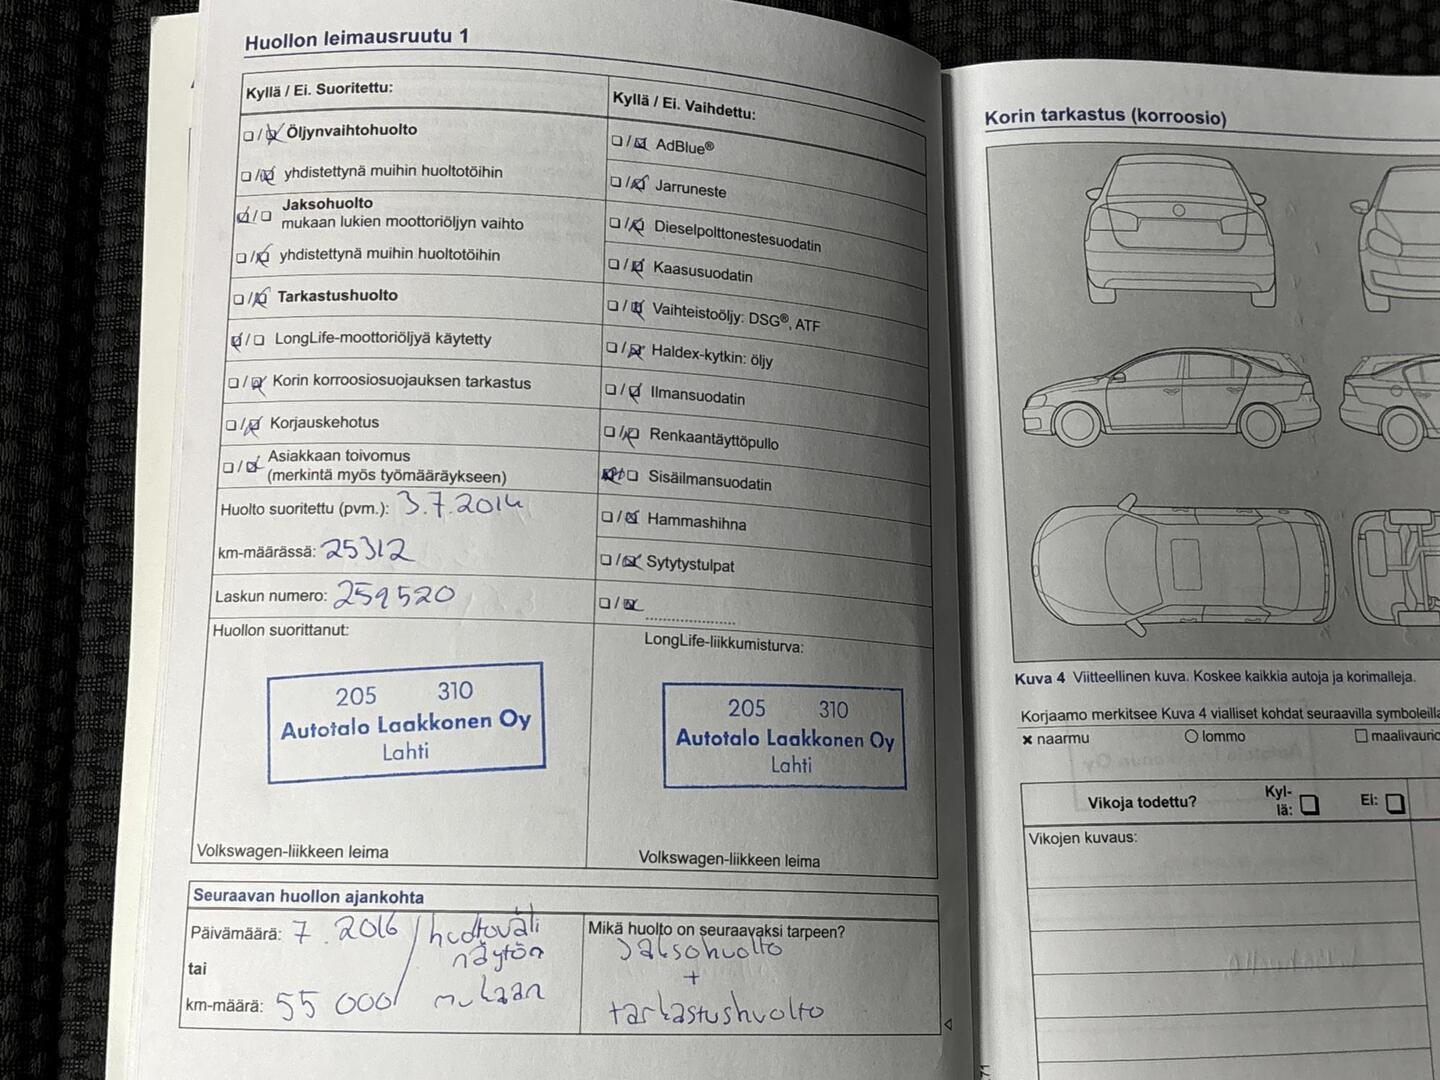 Huollon leimausruutu 1
Kyllä / Ei. Suoritettu:
Öljynvaihtohuolto
yhdistettynä muihin huoltotöihin
Jaksohuolto
mukaan lukien moottoriöljyn vaihto
yhdistettynä muihin huoltotöihin
Tarkastushuolto
LongLife-moottoriöljyä käytetty
Korin korroosiosuojauksen tarkastus
Korjauskehotus
Asiakkaan toivomus
(merkintä myös työmääräykseen)
Huolto suoritettu (pvm.): 3.7.2014
km-määrässä: 25312
Laskun numero: 259520
Kyllä / Ei. Vaihdettu:
AdBlue®
Jarruneste
Dieselpolttonestesuodatin
Kaasusuodatin
Vaihteistoöljy: DSG®, ATF
Haldex-kytkin: öljy
Ilmansuodatin
Renkaantäyttöpullo
Sisäilmansuodatin
Hammashihna
Sytytystulpat
Huollon suorittanut:
205 310
Autotalo Laakkonen Oy
Lahti
Volkswagen-liikkeen leima
LongLife-liikkumisturva:
205 310
Autotalo Laakkonen Oy
Lahti
Volkswagen-liikkeen leima
Seuraavan huollon ajankohta
Päivämäärä: 7.2016 / huoltoväli
näytön
tai
km-määrä: 55 000 mukaan
Mikä huolto on seuraavaksi tarpeen?
Jaksohuolto
+
tarkastushuolto
Korin tarkastus (korroosio)
Kuva 4 Viitteellinen kuva. Koskee kaikkia autoja ja korimalleja.
Korjaamo merkitsee Kuva 4 vialliset kohdat seuraavilla symboleilla
naarmu lommo maalivaurio
Vikoja todettu? Kyl-
lä: Ei:
Vikojen kuvaus:
71